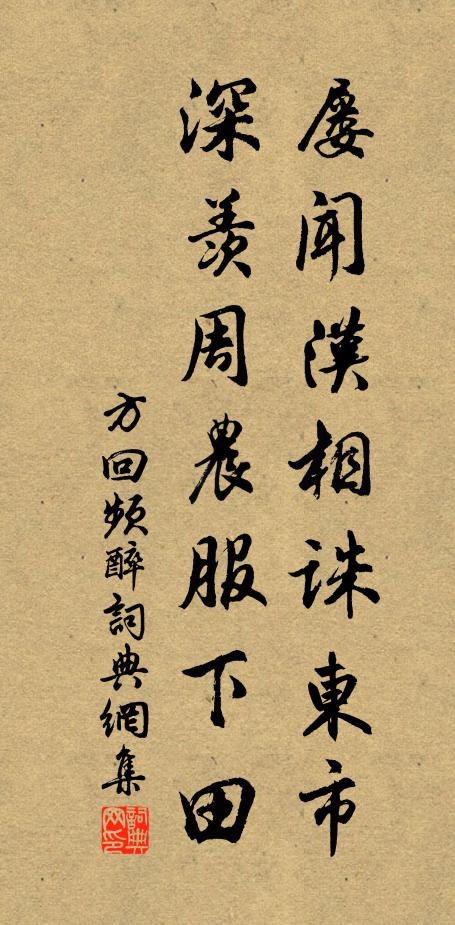 屡聞漢相誅東市
深羨周農服下田
方回頻醉詞典網集
詞典网印